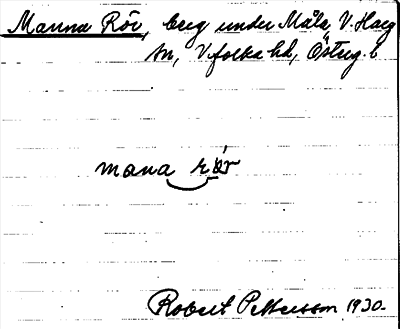 Manna Rör, berg under Måla, V. Harg
sn, Vifolka hd, Österg. l.
mana rör
Robert Pettersson 1930.